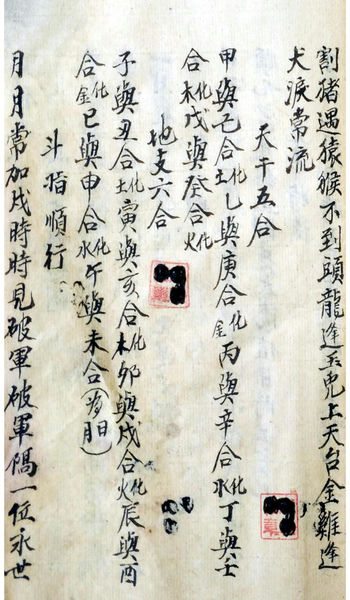 割猪遇猿猴不到頭龍逢玉兔上天台金雞逢
犬淚常流
天干五合
甲與己合化土乙與庚合化金丙與辛合化水丁與壬
合化木戊與癸合化火
地支六合
子與丑合化土寅與亥合化木卯與戌合化火辰與酉
合化金巳與申合化水午與未合
斗指順行
月月常加戌時時見破軍破軍隅一位永世